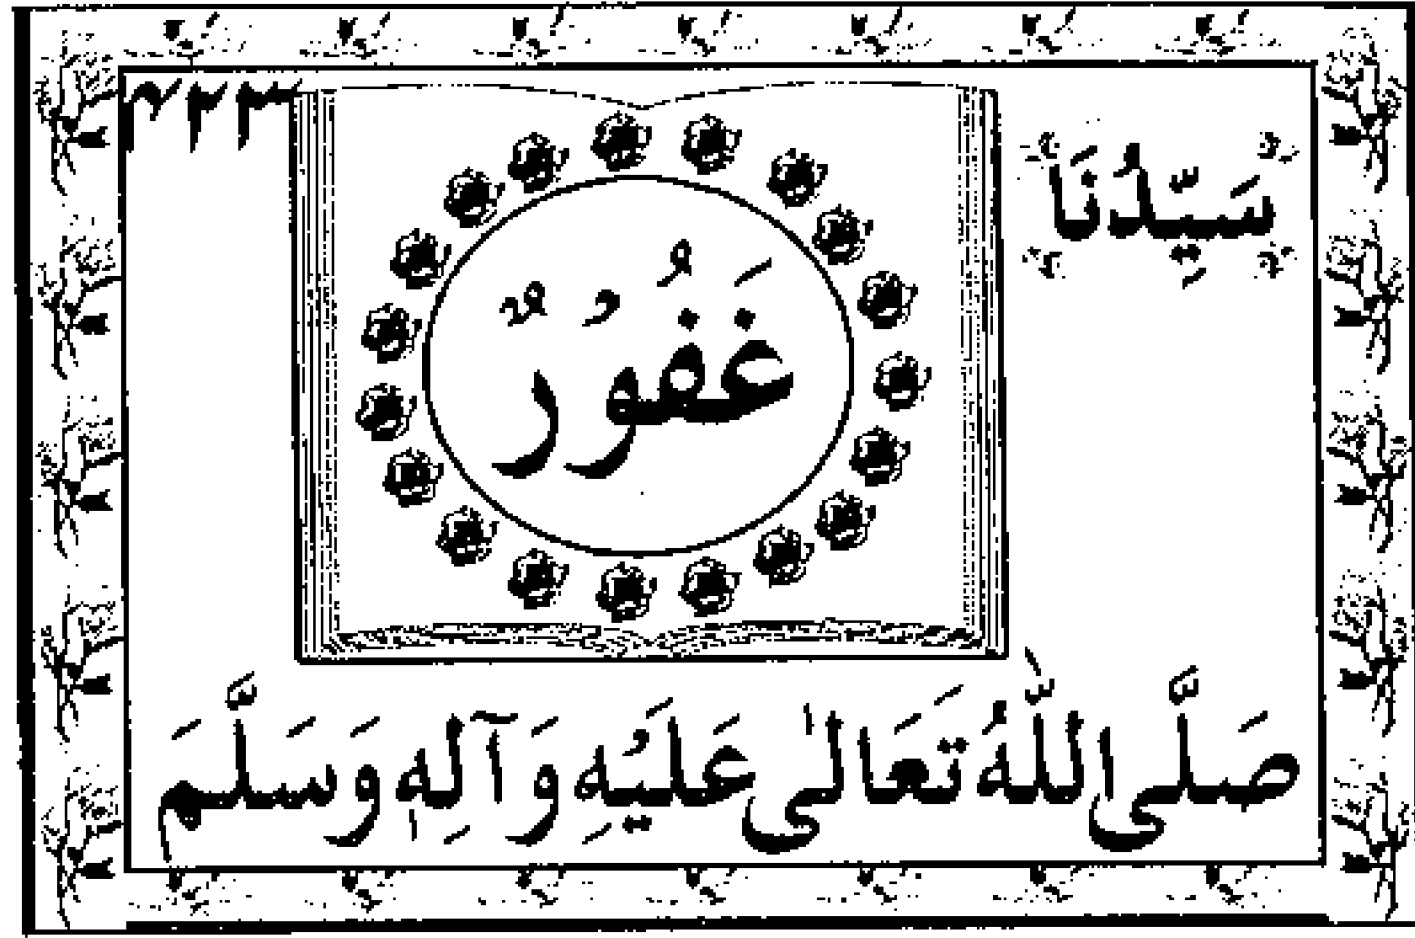 ۶۲۳
سَيِّدُنَا
غَفُوْرٌ
صَلَّى اللّٰهُ تَعَالٰى عَلَيْهِ وَآلِهٖ وَسَلَّمَ